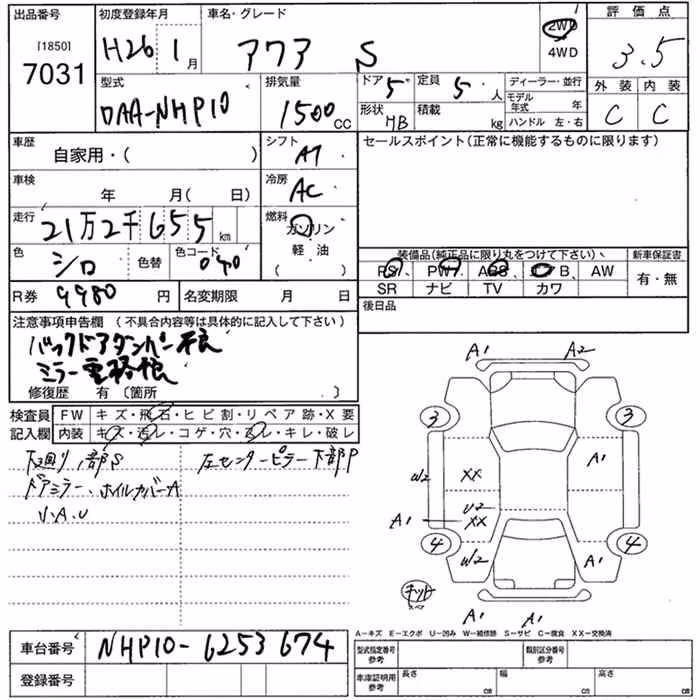 出品番号
[1850]
7031
初度登録年月
H26 1月
車名・グレード
アクア S
2WD
4WD
評価点
3.5
型式
DAA-NHP10
排気量
1500cc
ドア 5
定員 5人
形状 HB
積載 kg
ディーラー・並行
モデル年式 年
ハンドル 左・右
外装 内装
C C
車歴
自家用・( )
シフト
AT
セールスポイント(正常に機能するものに限ります)
車検
年 月( 日)
冷房
AC
走行
21万2千655km
燃料
ガソリン
軽油
( )
色
シロ
色替
色コード
040
装備品(純正品に限り丸をつけて下さい)
新車保証書
PS PW ABS エアB AW
SR ナビ TV カワ
有・無
R券 9980円
名変期限 月 日
後日品
注意事項申告欄 (不具合内容等は具体的に記入して下さい)
バックドアダンパー不良
ミラー電格不良
修復歴 有 〔箇所 〕
検査員
記入欄
FW キズ・飛石・ヒビ割・リペア跡・X要
内装 キズ・汚レ・コゲ・穴・スレ・キレ・破レ
下廻り1部S
左センターピラー下部P
ドアミラー、ホイルカバーA
A1 A2
3 3
W2 XX A1
U2
A1 XX
4 4
W2 A1
キット
スペア
A1 A1
A−キズ E−エクボ U−凹み W−補修跡 S−サビ C−腐食 XX−交換済
車台番号 NHP10-6253674
登録番号
型式指定番号
参考
類別区分番号
参考
車庫証明用
参考
長さ cm
幅 cm
高さ cm